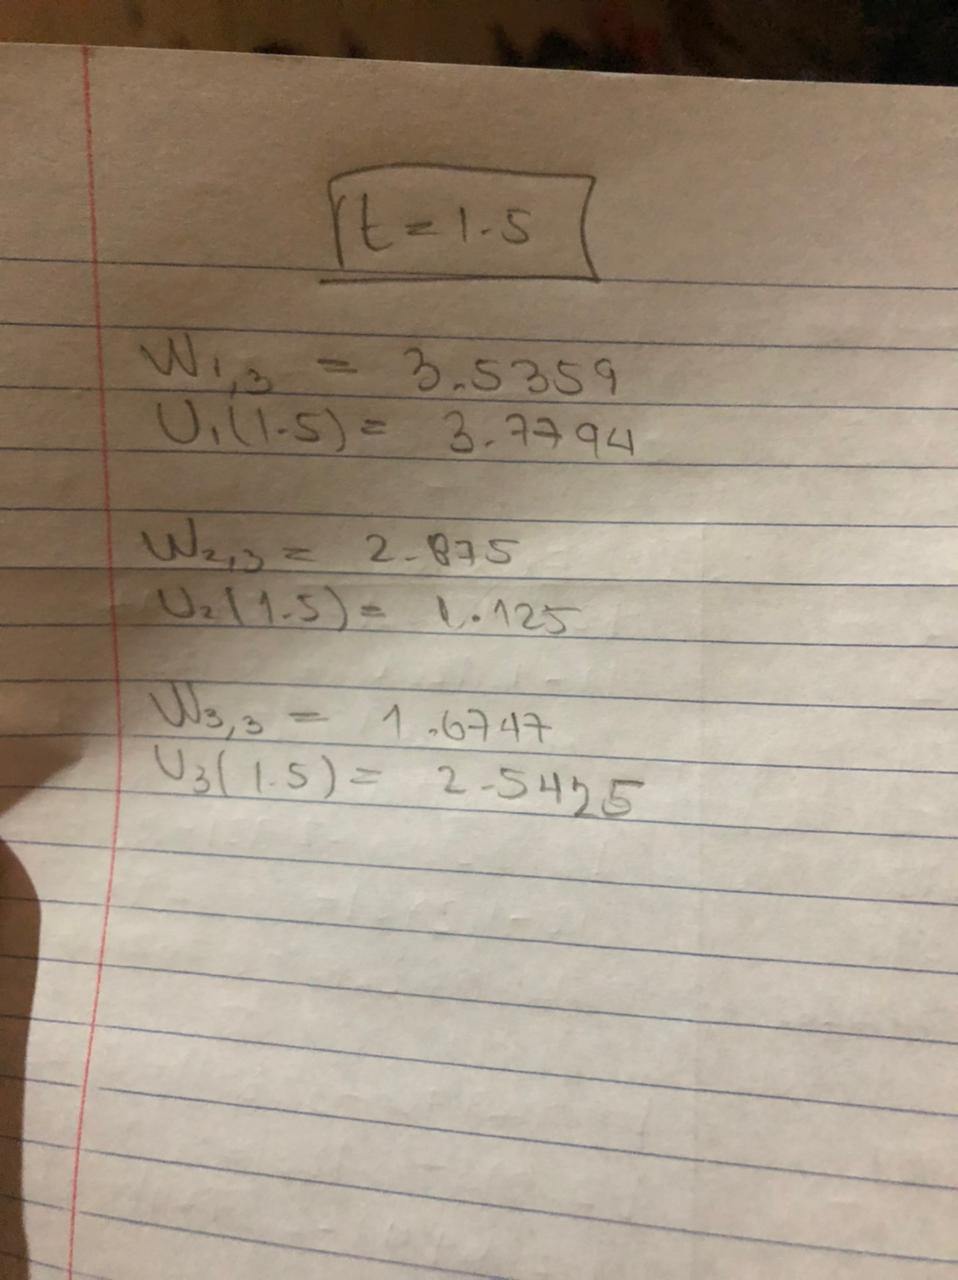 t = 1.5
W1,3 = 3.5359
U1(1.5) = 3.7794
W2,3 = 2.875
U2(1.5) = 1.125
W3,3 = 1.6747
U3(1.5) = 2.5425